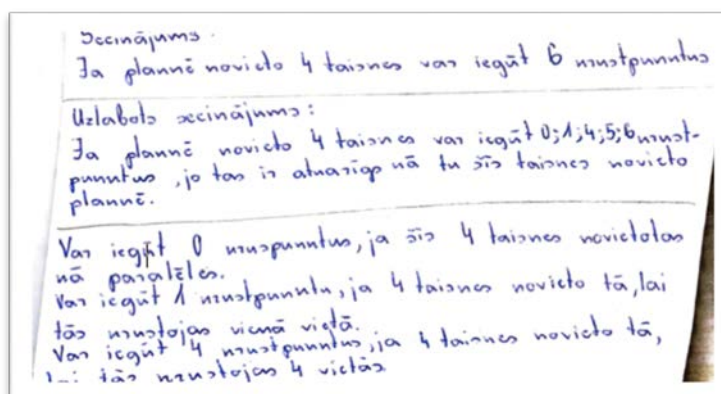 Secinājums.
Ja plannē novieto 4 taisnes var iegūt 6 krustpunktus
Uzlabots secinājums:
Ja plannē novieto 4 taisnes var iegūt 0;1;4;5;6 krust-
punktus, jo tas ir atkarīgs kā tu šīs taisnes novieto
plannē.
Var iegūt 0 kruspunktus, ja šīs 4 taisnes novietotas
kā paralēles.
Var iegūt 1 krustpunktu, ja 4 taisnes novieto tā, lai
tās krustojas vienā vietā.
Var iegūt 4 krustpunktus, ja 4 taisnes novieto tā,
lai tās krustojas 4 vietās